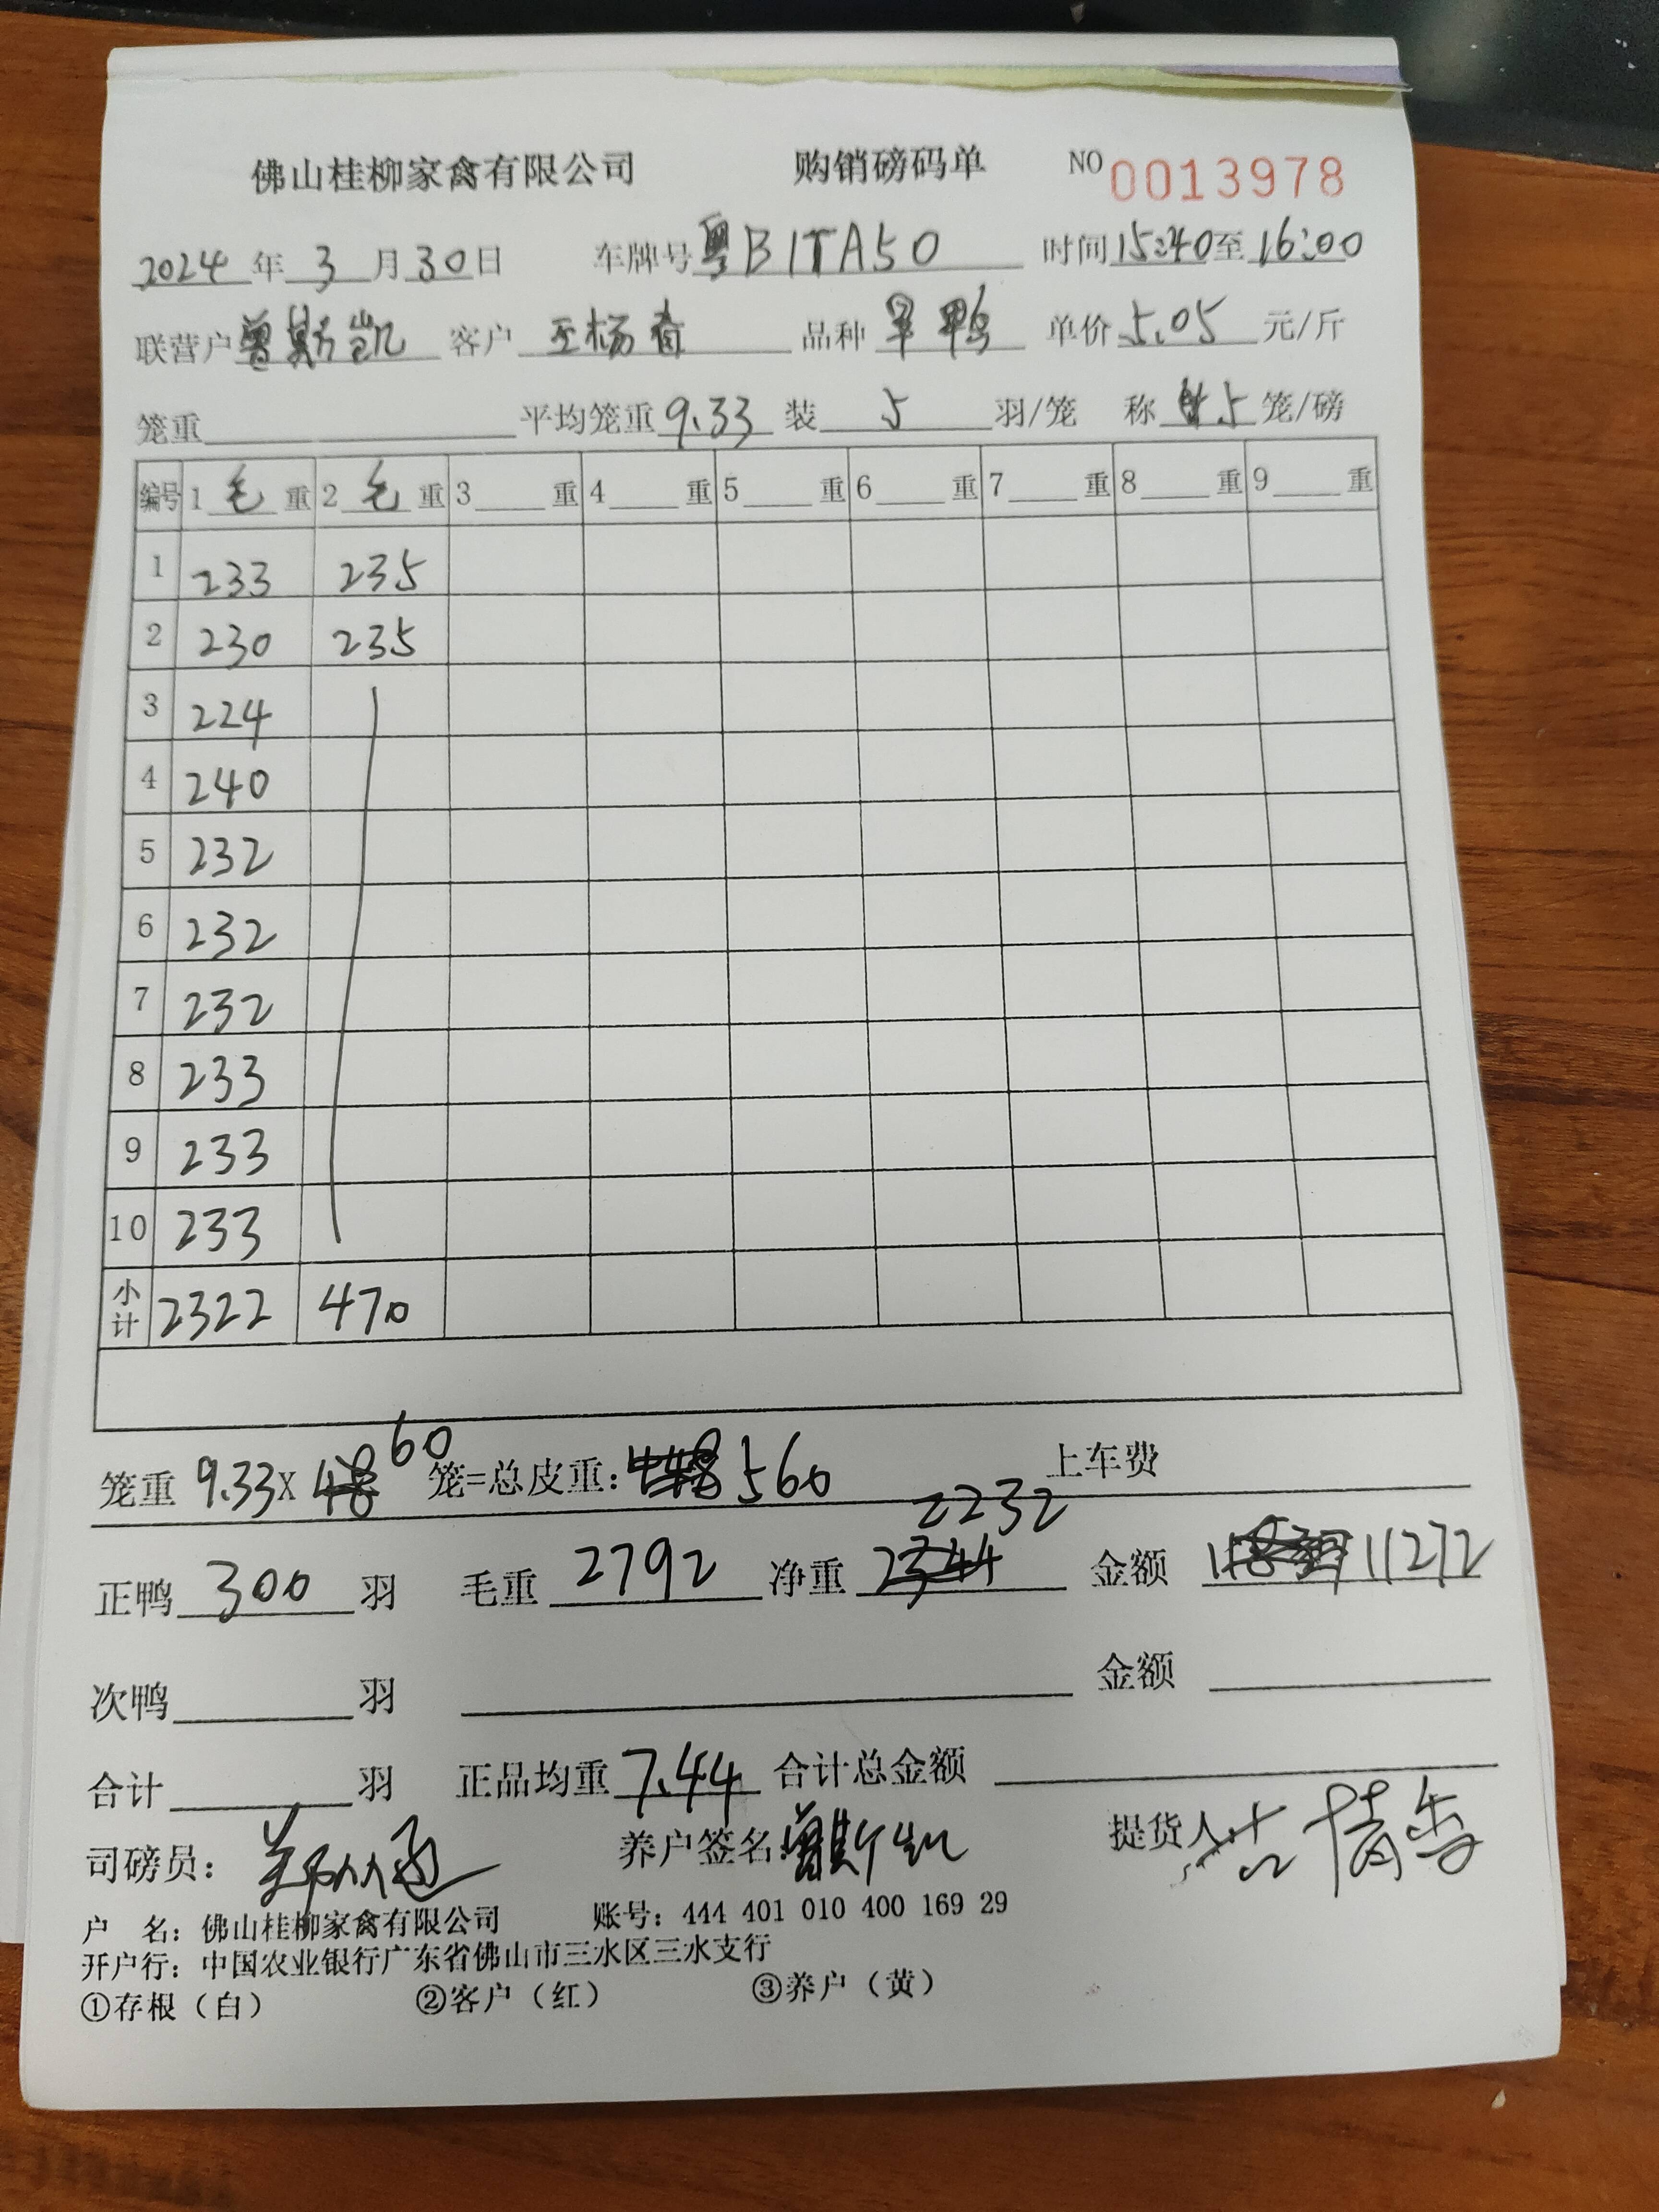 佛山桂柳家禽有限公司 购销磅码单 NO 0013978
2024年3月30日 车牌号粤B1TA50 时间15:40至16:00
联营户曾斯凯 客户 品种旱鸭 单价5.05元/斤
笼重 平均笼重9.33装5羽/笼 称5笼/磅
编号 1毛重 2毛重 3重 4重 5重 6重 7重 8重 9重
1 233 235
2 230 235
3 224
4 240
5 232
6 232
7 232
8 233
9 233
10 233
小计 2322 470
笼重9.33X60笼=总皮重:560 上车费
正鸭300羽 毛重2792 净重2232 金额11272
次鸭羽 金额
合计羽 正品均重7.44 合计总金额
司磅员: 养户签名:曾斯凯 提货人:
户 名:佛山桂柳家禽有限公司 账号:444 401 010 400 169 29
开户行:中国农业银行广东省佛山市三水区三水支行
①存根(白) ②客户(红) ③养户(黄)